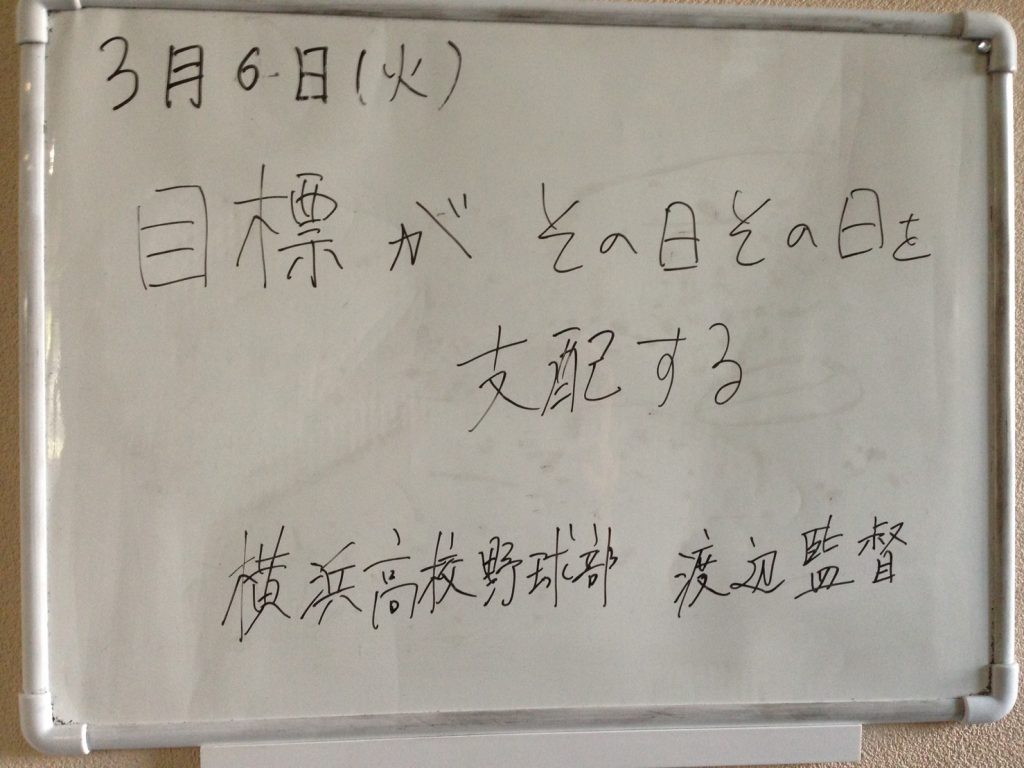 3月6日(火)
目標が その日その日を
支配する
横浜高校野球部 渡辺監督